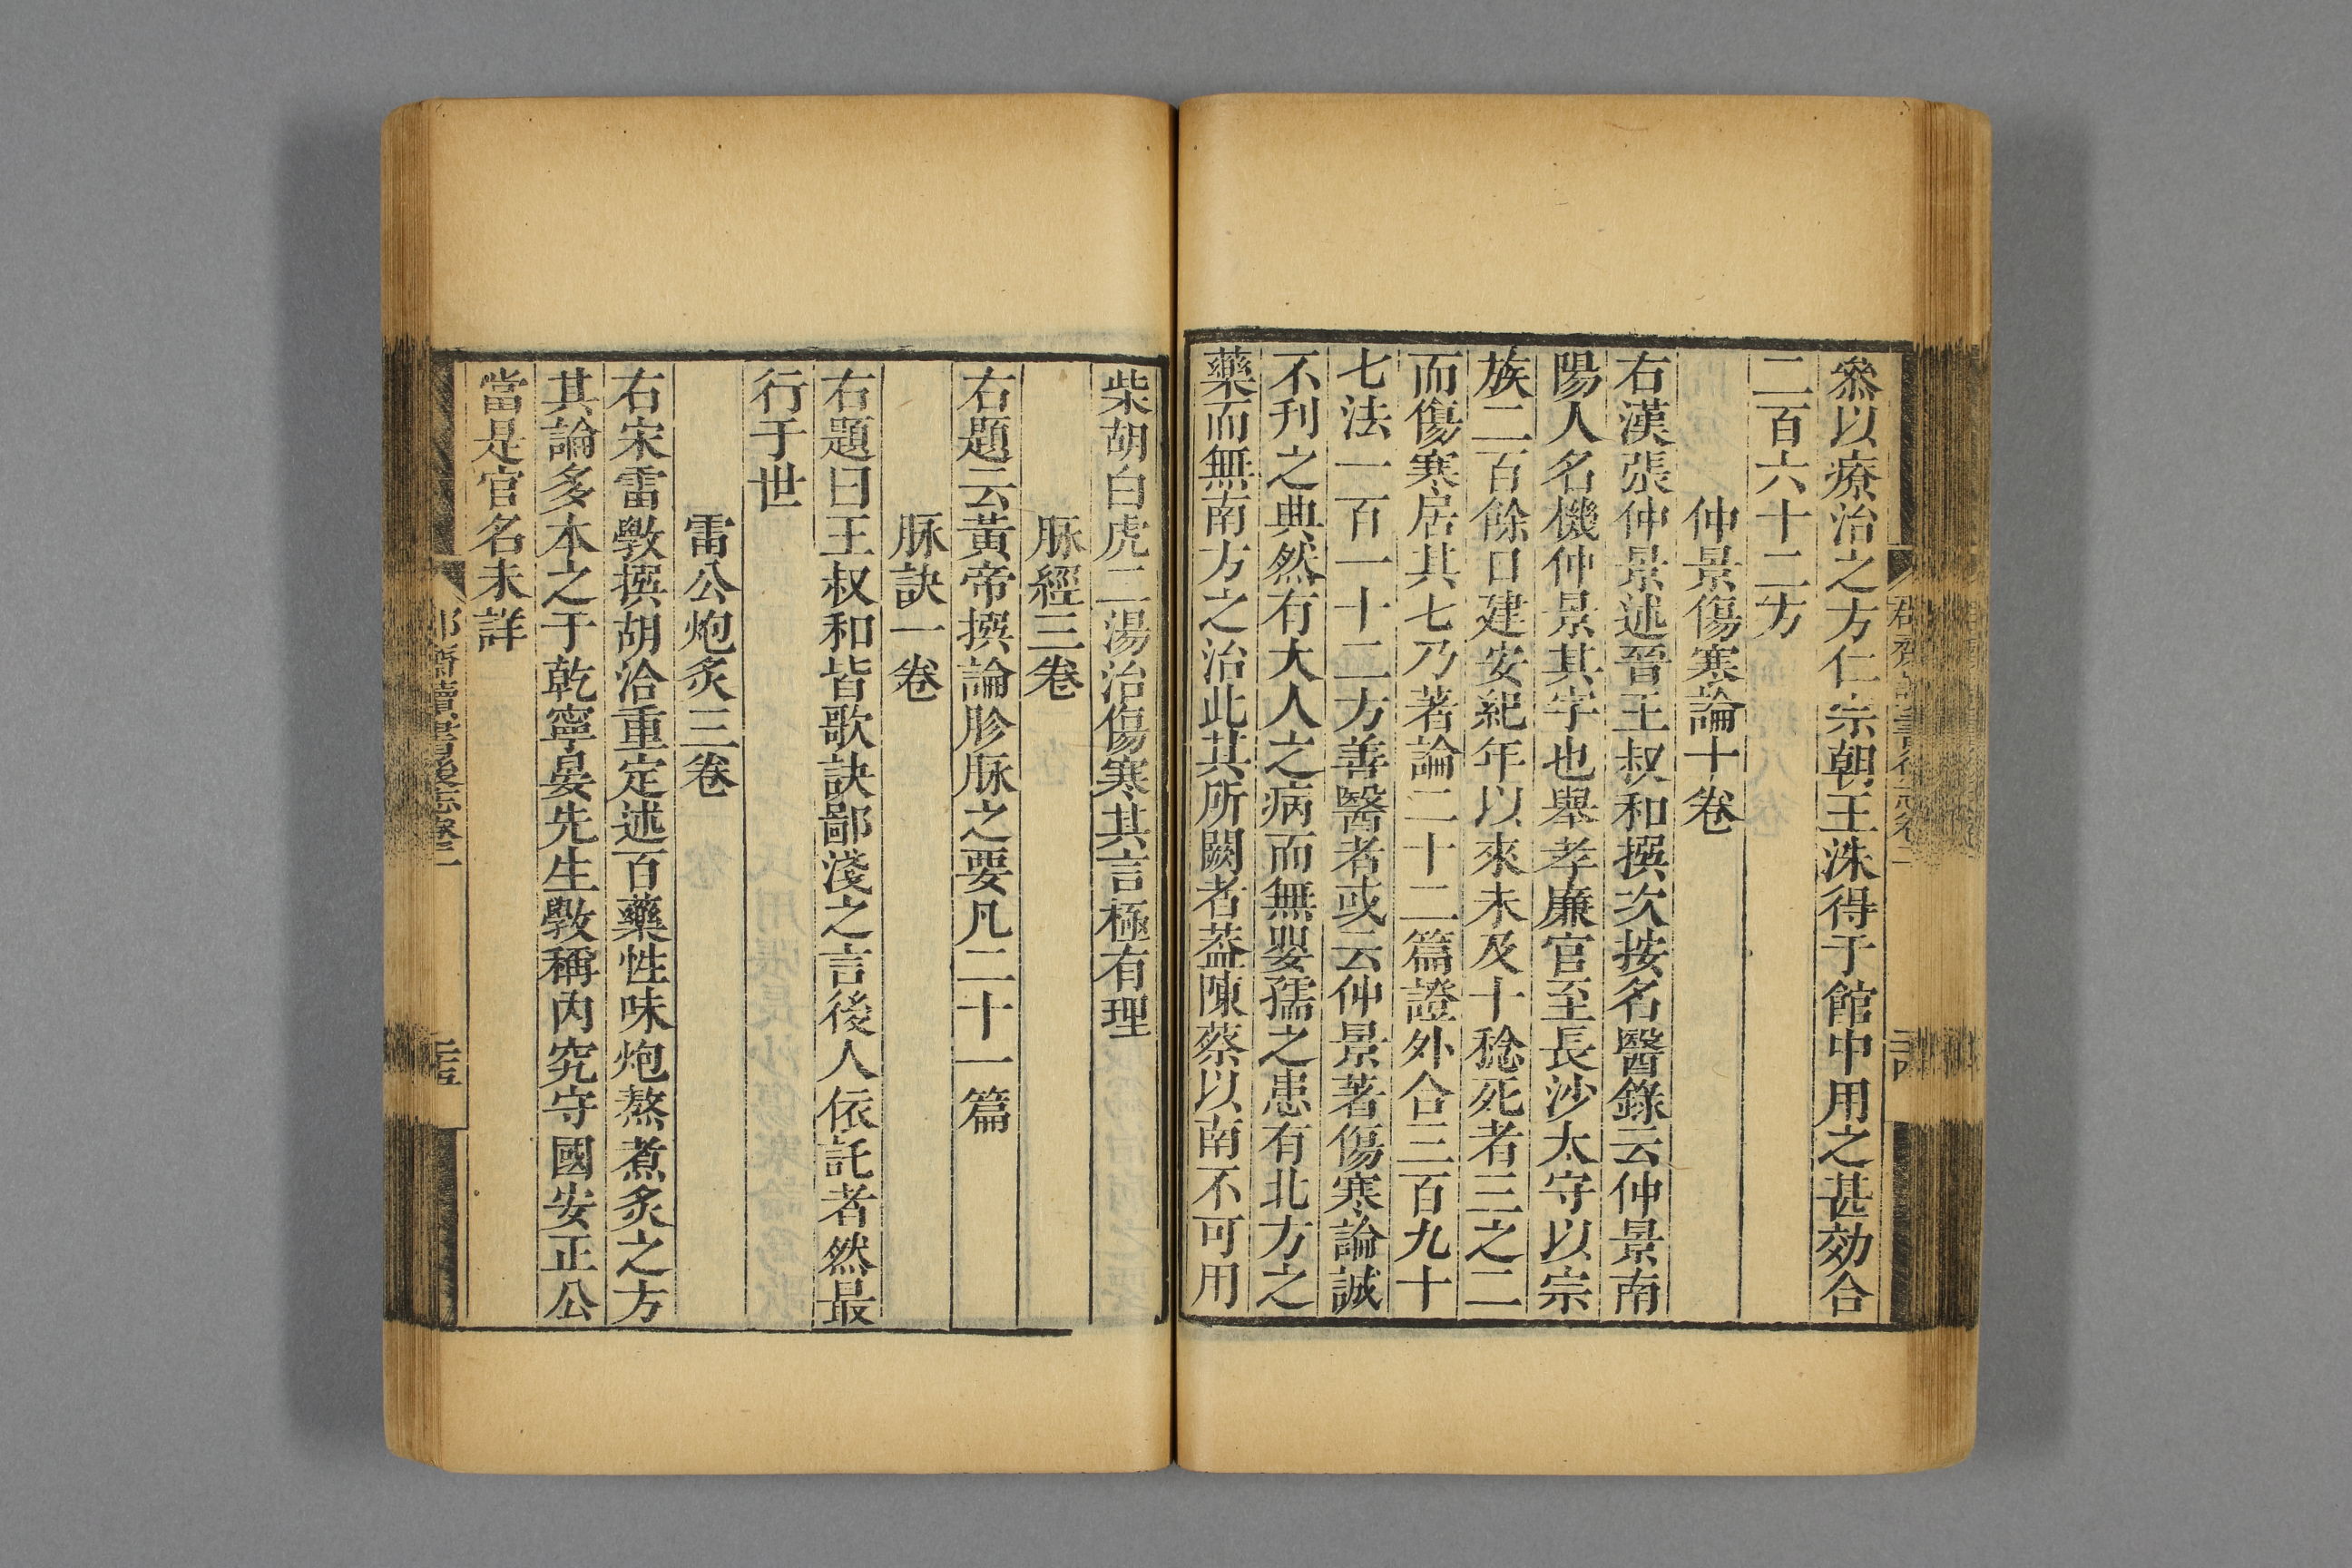 叅以療治之方仁宗朝王洙得于館中用之甚効合
二百六十二方
仲景傷寒論十卷
右漢張仲景述晉王叔和撰次按名醫錄云仲景南
陽人名機仲景其字也舉孝廉官至長沙太守以宗
族二百餘口建安紀年以來未及十稔死者三之二
而傷寒居其七乃著論二十二篇證外合三百九十
七法一百一十二方善醫者或云仲景著傷寒論誠
不刊之典然有大人之病而無嬰孺之患有北方之
藥而無南方之治此其所闕者葢陳蔡以南不可用
柴胡白虎二湯治傷寒其言極有理
脉經三卷
右題云黃帝撰論胗脉之要凡二十一篇
脉訣一卷
右題曰王叔和皆歌訣鄙淺之言後人依託者然最
行于世
雷公炮炙三卷
右宋雷斆撰胡洽重定述百藥性味炮熬煮炙之方
其論多本之于乾寧晏先生斆稱內究守國安正公
當是官名未詳
齋讀書後志卷二